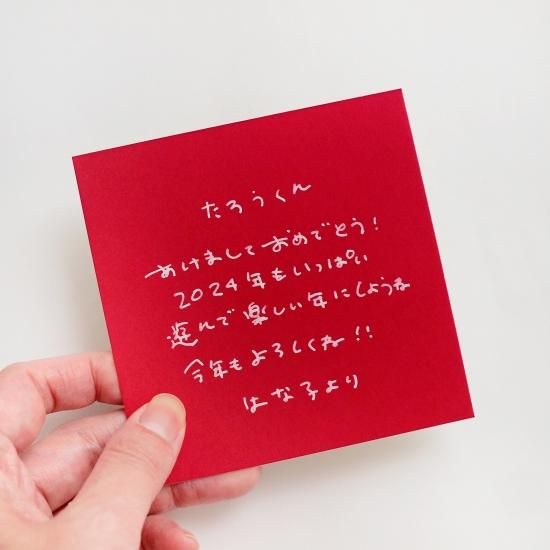 たろうくん
あけましておめでとう!
2024年もいっぱい
遊んで楽しい年にしようね
今年もよろしくね!!
はな子より